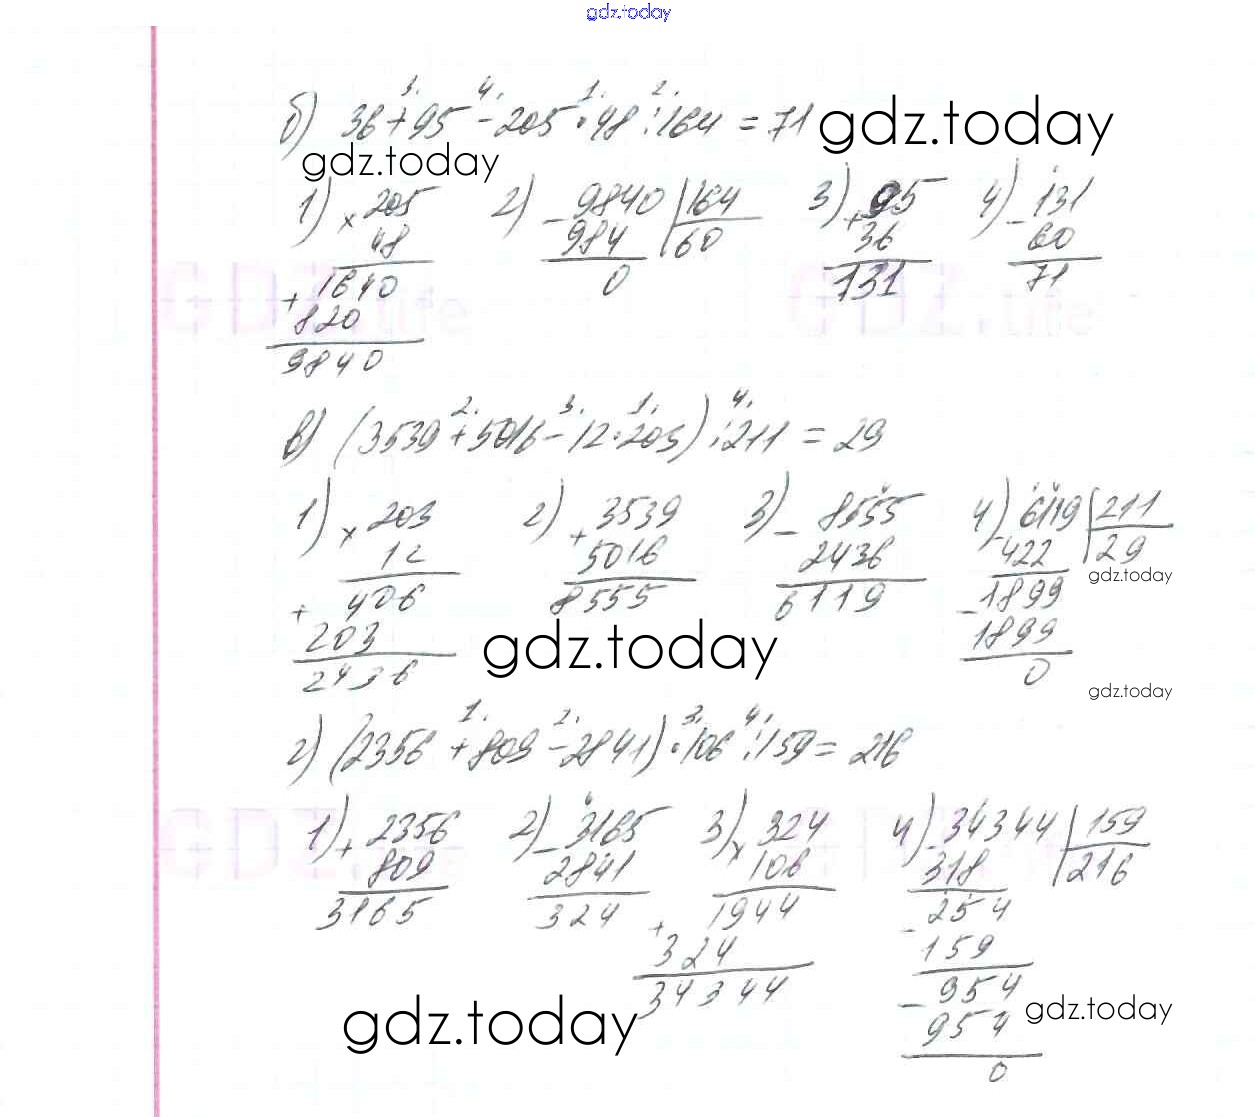 gdz.today
б) 36 + 95 - 205 · 48 : 164 = 71
gdz.today
gdz.today
1) × 205
48
+ 1640
820
9840
2) - 9840 | 164
984 | 60
0
3) + 95
36
131
4) - 131
60
71
в) (3539 + 5016 - 12 · 203) : 211 = 29
1) × 203
12
+ 406
203
2436
2) + 3539
5016
8555
3) - 8555
2436
6119
4) - 6119 | 211
422 | 29
- 1899
1899
0
gdz.today
gdz.today
gdz.today
г) (2356 + 809 - 2841) · 106 : 159 = 216
1) + 2356
809
3165
2) - 3165
2841
324
3) × 324
106
+ 1944
324
34344
4) - 34344 | 159
318 | 216
- 254
159
- 954
954
0
gdz.today
gdz.today